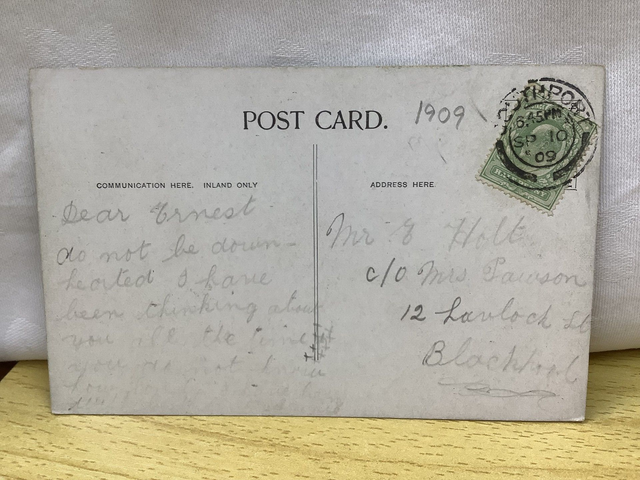 POST CARD.
1909
SOUTHPORT
6.45PM
SP 10
09
COMMUNICATION HERE. INLAND ONLY
ADDRESS HERE.
Dear Ernest
do not be down-
hearted I have
been thinking about
you all the time
you
Mr E Holt
c/o Mrs Pawson
12 Lavlock St
Blackpool